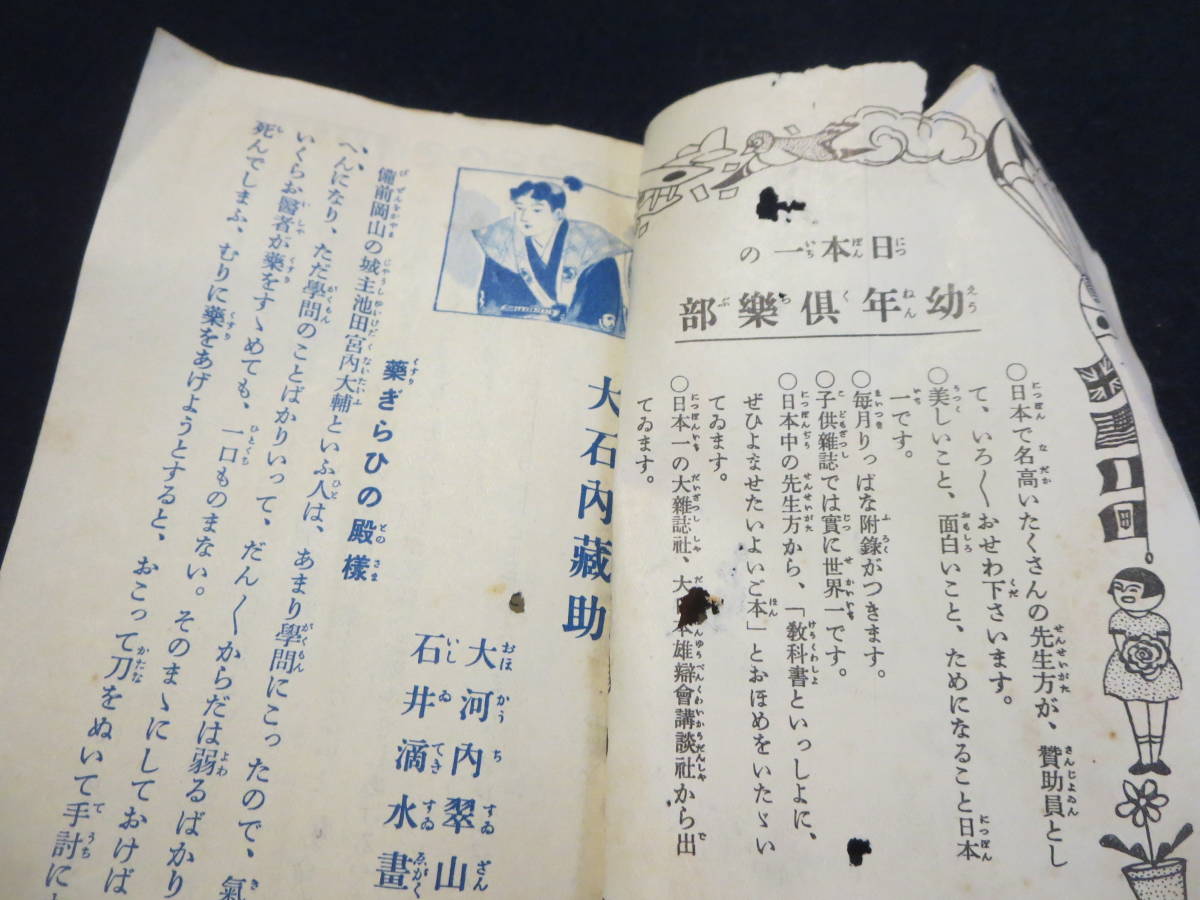 日本一の
幼年倶樂部
○日本で名高いたくさんの先生方が、贊助員とし
て、いろ〱おせわ下さいます。
○美しいこと、面白いこと、ためになること日本
一です。
○毎月りっぱな附錄がつきます。
○子供雜誌では實に世界一です。
○日本中の先生方から、「敎科書といっしよに、
ぜひよませたいよいご本」とおほめをいたゞい
てゐます。
○日本一の大雜誌社、大日本雄辯會講談社から出
てゐます。
大石內藏助
大河內翠山
石井滴水畫
藥ぎらひの殿樣
備前岡山の城主池田宮內大輔といふ人は、あまり學問にこったので、氣
へんになり、ただ學問のことばかりいって、だん〱からだは弱るばかり
いくらお醫者が藥をすゝめても、一口ものまない。そのまゝにしておけば
死んでしまふ、むりに藥をあげようとすると、おこって刀をぬいて手討に